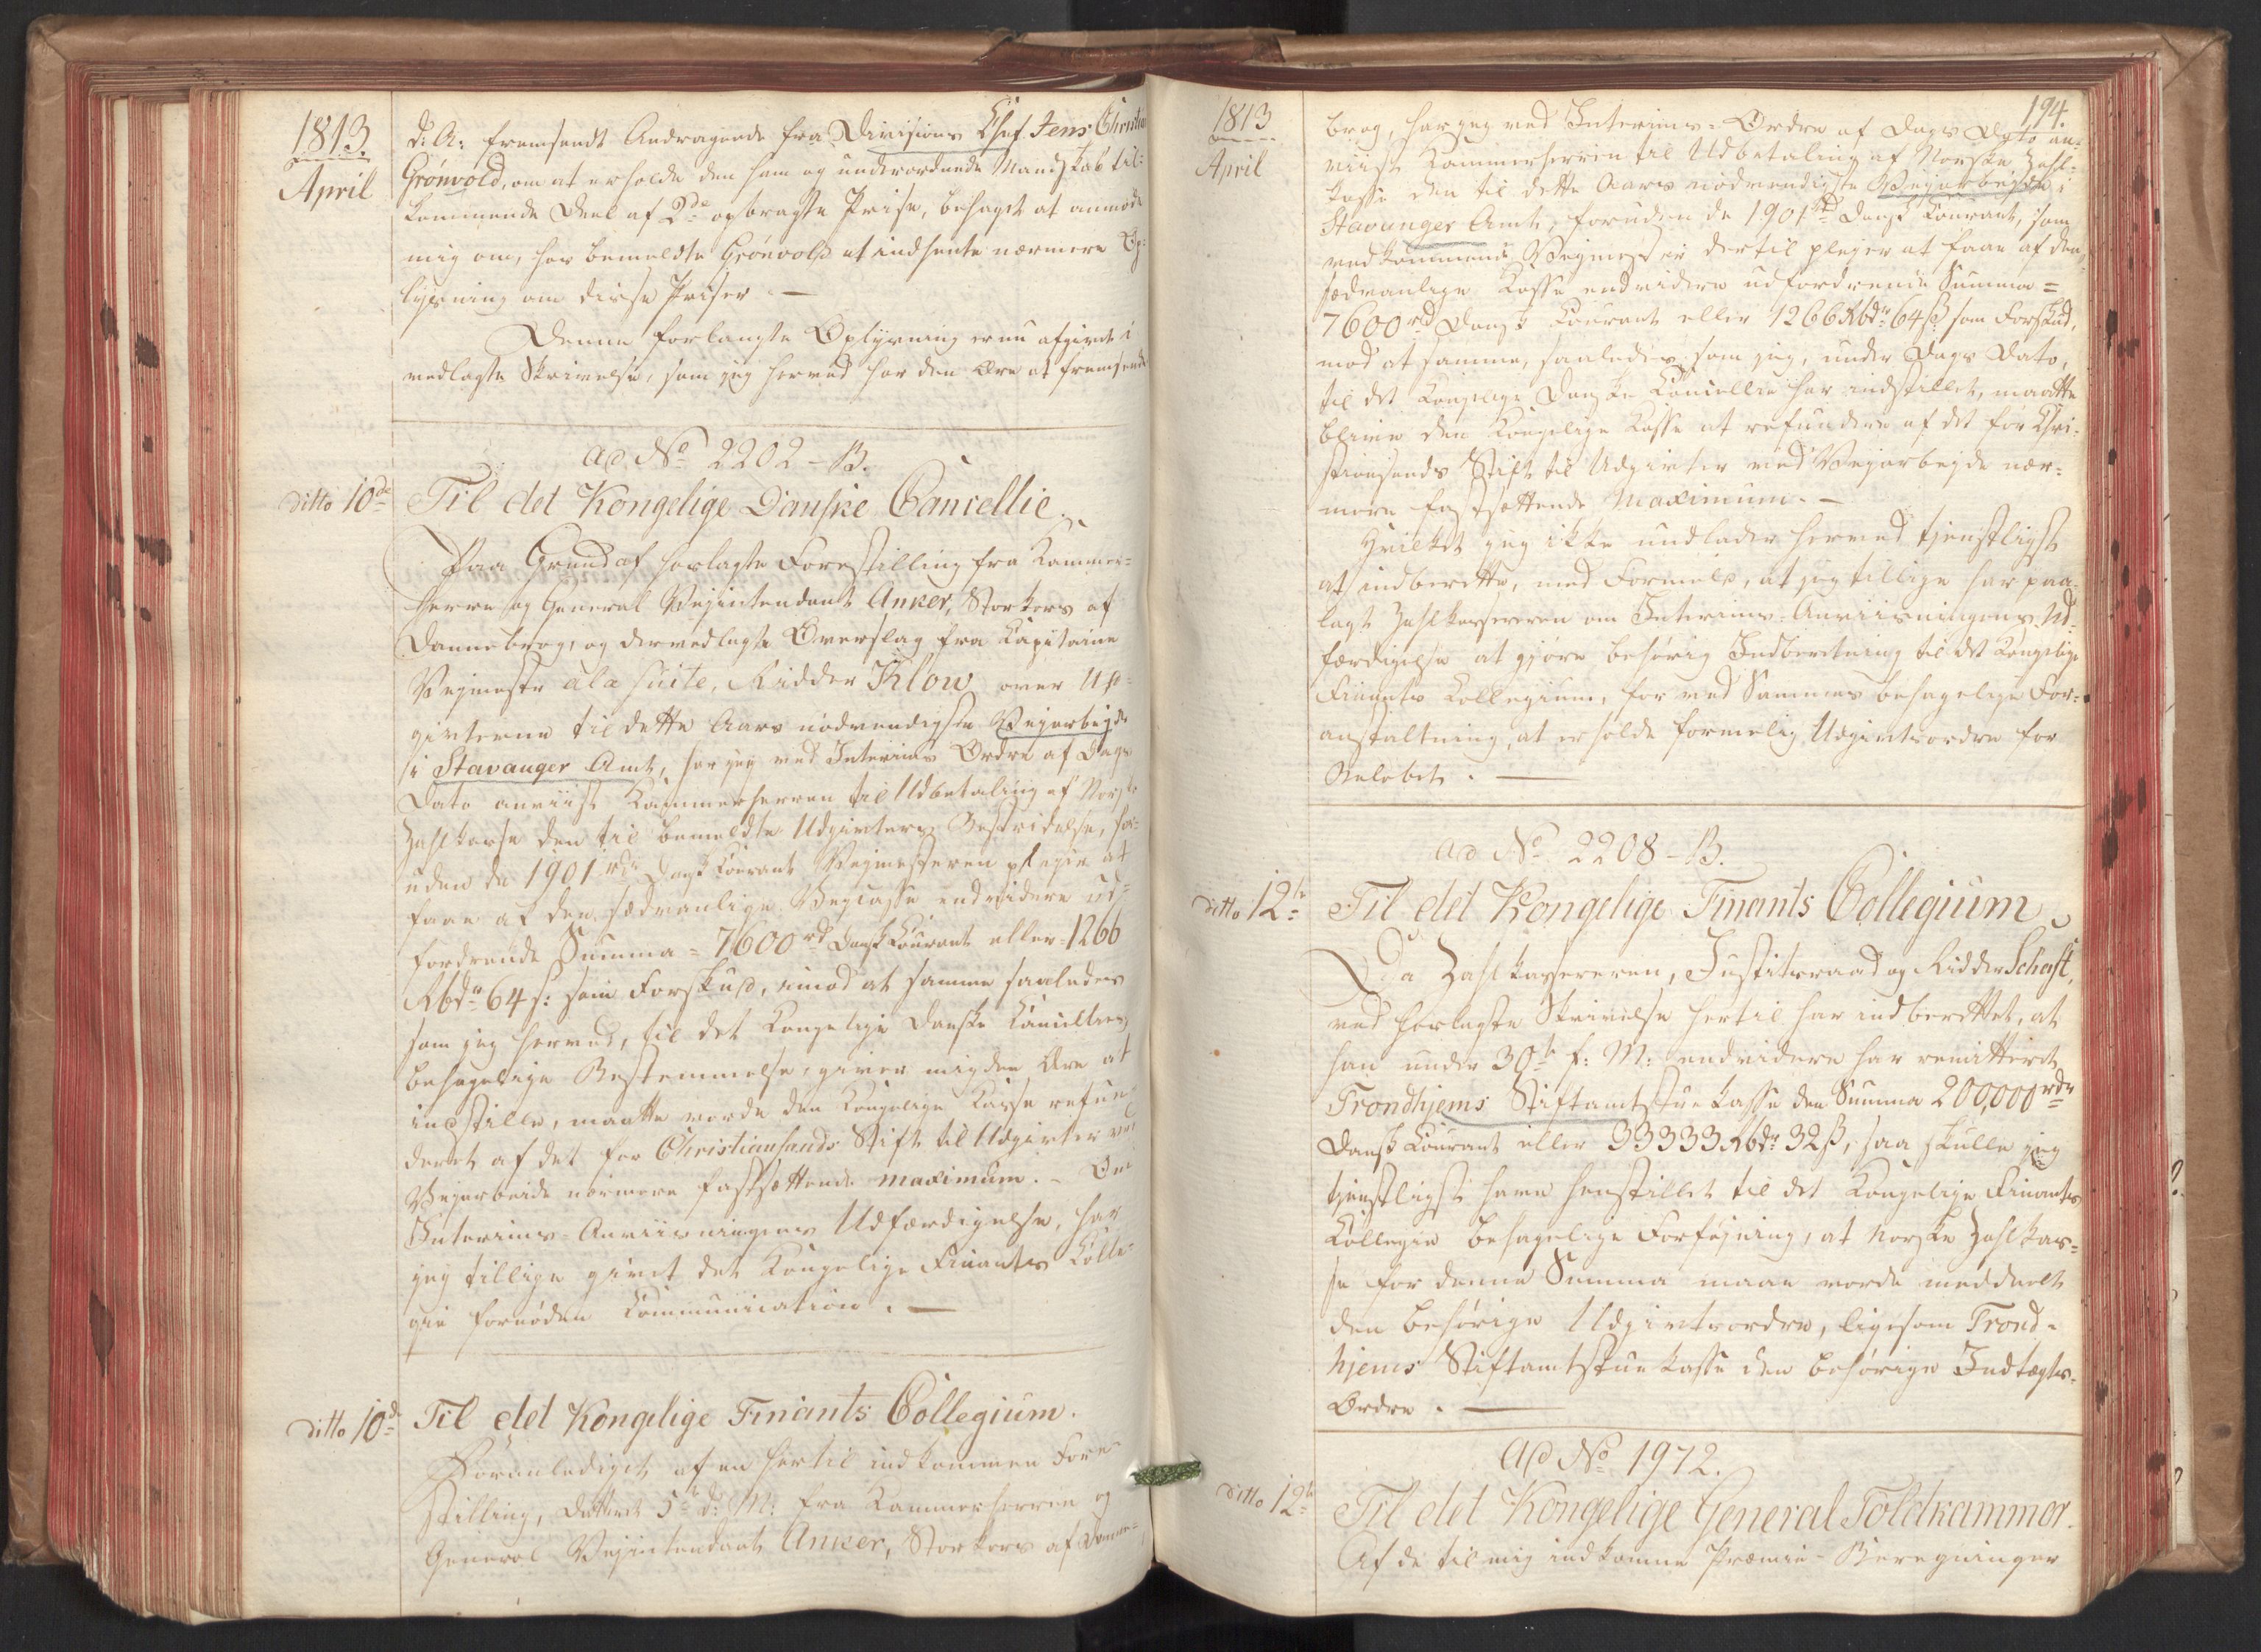 1813.
April
d: A: fremsendt Andragende fra Divisions Chef Jens Christian
Grönvold, om at erholde den ham og underordnede Mandskab til-
kommende Deel af 2de opbragte Prise, behaget at anmode
mig om, hos bemeldte Grönvold at indhente nærmere Op-
lysning om disse Priser. —
Denne forlangte Oplysning er nu afgivet i
vedlagte Skrivelse, som jeg herved har den Ære at fremsende
ad No 2202 - B.
ditto 10de
Til det Kongelige Danske Cancellie.
Paa Grund af herlagte Forestilling fra Kammer-
herre og General Vejintendant Anker, Storkors af
Dannebrog, og dervedlagte Overslag fra Capitaine
Vejmester ala suite, Ridder Klow over Ud-
givterne til dette Aars nødvendigste Vejarbejde
i Stavanger Amt, har jeg ved Interims Ordre af Dags
Dato anviist Kammerherren til Udbetaling af Norske
Zahlkasse den til bemeldte Udgivters Bestridelse, for-
uden de 1901 rdr Dansk Courant Vejmesteren plejer at
faae af den sædvanlige Vejcasse endvidere ud-
fordrende Summa = 7600 rd Dansk Courant eller 1266
Rbdr 64 s: som Forskud, imod at samme saaledes
som jeg herved, til det Kongelige Danske Cancellies
behagelige Bestemmelse, giver mig den Ære at
indstille, maatte vorde den Kongelige Kasse refun-
deret af det for Christiansands Stift til Udgivter ved
Vejarbeide nærmere fastsættende maximum. - Om
Interims-Anviisningens Udfærdigelse, har
jeg tillige givet det Kongelige Finants Colle-
gie fornøden Communication. —
ditto 10de
Til det Kongelige Finants Collegium.
Foranlediget af en hertil indkommen Fore-
stilling, dateret 5te d: M: fra Kammerherren og
General Vejintendant Anker, Storkors af Danne-
194.
1813
April
brog, har jeg ved Interims-Ordre af Dags Dato an-
viist Kammerherren til Udbetaling af Norske Zahl-
kasse den til dette Aars nødvendigste Vejarbejde i
Stavanger Amt, foruden de 1901 rd Dansk Courant, som
vedkommende Vejmester dertil plejer at faae af den
sædvanlige Kasse endvidere udfordrende Summa =
7600 rd Dansk Courant eller 1266 Rbdr 64 ß som Forskud,
mod at samme, saaledes som jeg, under Dags Dato,
til det Kongelige Danske Cancellie har indstillet, maatte
blive den Kongelige Kasse at refundere af det for Chri-
stiansands Stift til Udgivter ved Vejarbejde nær-
mere fastsættende Maximum. —
Hvilket jeg ikke undlader herved tjenstligst
at indberette, med Formeld, at jeg tillige har paa-
lagt Zahlkassereren om Interims-Anviisningens Ud-
færdigelse at gjøre behørig Indberetning til det Kongelige
Finants Collegium, for ved Sammes behagelige For-
anstaltning, at erholde formelig Udgivtsordre for
Beløbet. —
ad No 2208 - B.
ditto 12te
Til det Kongelige Finants Collegium.
Da Zahlkassereren, Justitsraad og Ridder Scheist,
ved herlagte Skrivelse hertil har indberettet, at
han under 30te f: M: endvidere har remitteret
Trondhjems Stiftamtstue Kasse den Summa 200,000 rdr
Dansk Courant eller 33333 Rbdr 32 ß, saa skulle jeg
tjenstligst have henstillet til det Kongelige Finants
Collegies behagelige Forføjning, at Norske Zahlkas-
se for denne Summa maae vorde meddeelt
den behørige Udgivtsordre, ligesom Trond-
hjems Stiftamtstue Kasse den behørige Indtægts-
Ordre. —
Ad No 1972.
ditto 12te
Til det Kongelige General Toldkammer.
Af de til mig indkomne Præmie-Beregninger